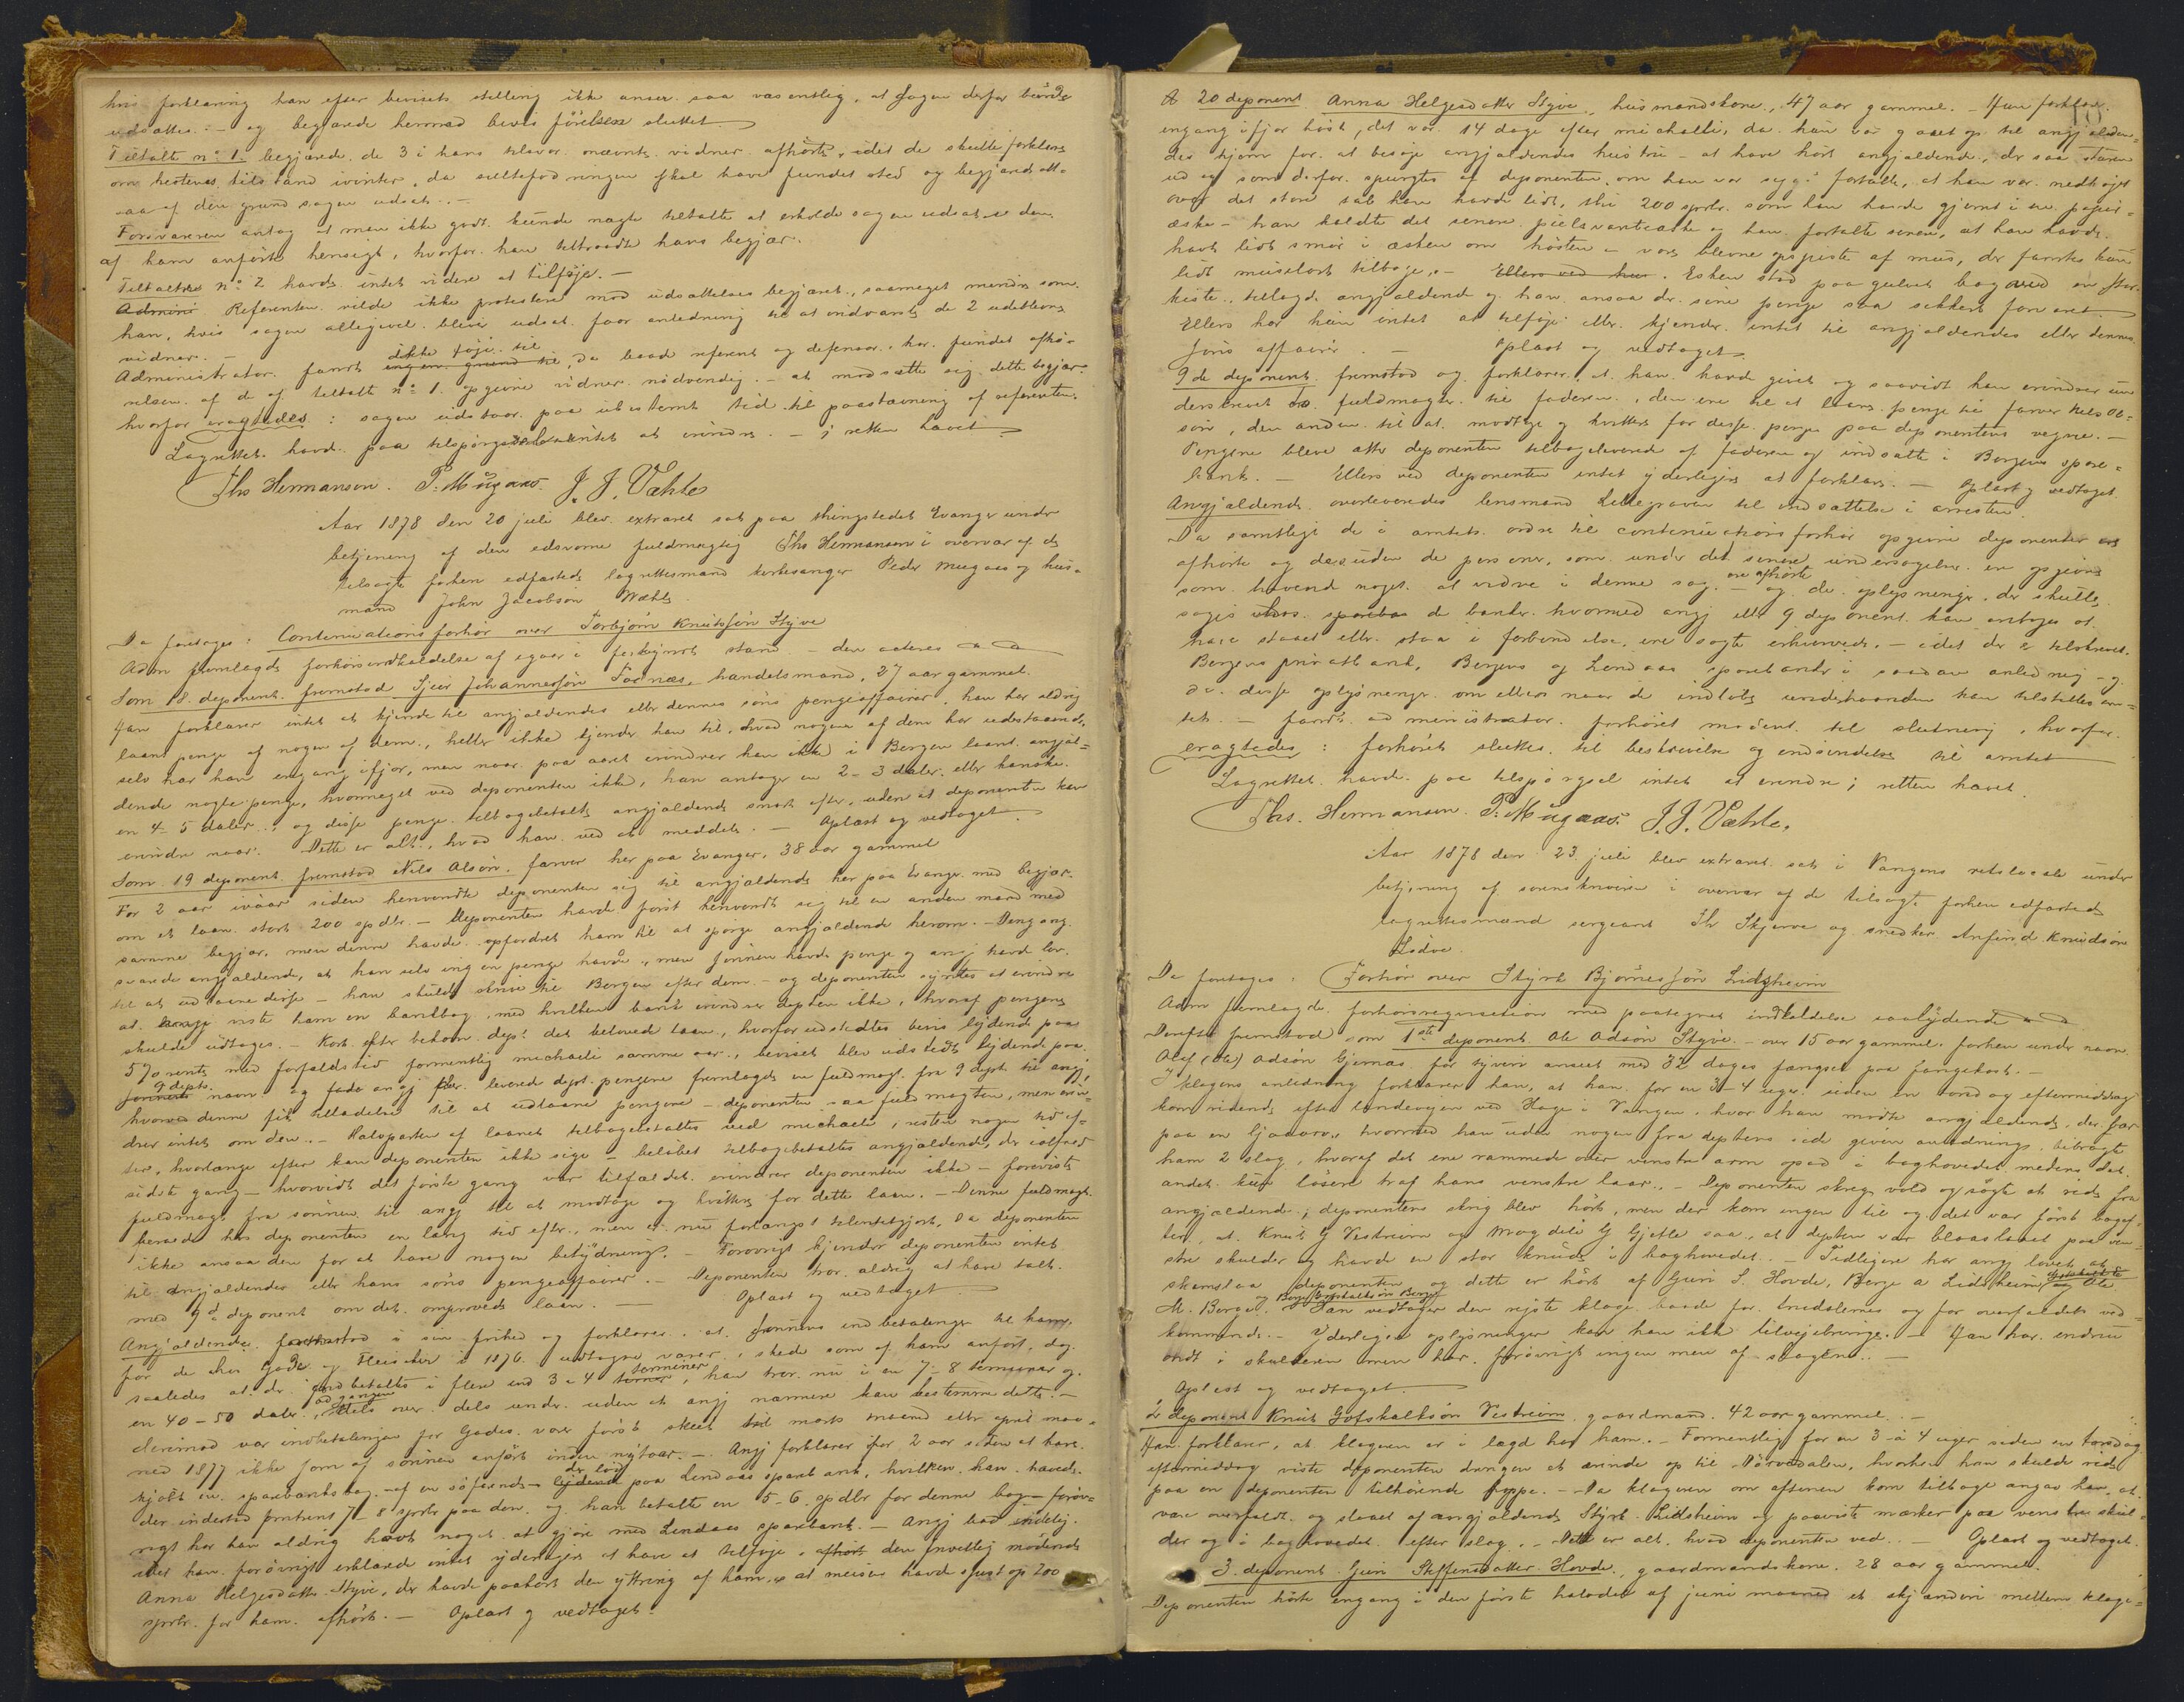 hvis forklaring han efter bevisets stilling ikke anser saa væsentlig, at sagen derfor burde
udsættes. – og begjærede hermed bevisførelsen sluttet.
Tiltalte no 1. begjærede de 3 i hans tilsvar nævnte vidner afhørte, idet de skulde forklare
om hestenes tilstand ivinter, da sultefodringen skal have fundet sted og begjærede alt-
saa af den grund sagen udsat. –
Forsvareren antog at man ikke godt kunde nægte tiltalte at erholde sagen udsat i den
af ham anførte hensigt, hvorfor han tiltraadte hans begjær.
Tiltalte no 2 havde intet videre at tilføje. –
Referenten vilde ikke protestere mod udsættelses begjæret, saameget mindre som
han, hvis sagen alligevel bliver udsat faar anledning til at indvarsle de 2 udeblevne
vidner. –
Administrator fandt ikke føje til, da baade referent og defensor har fundet afhø-
relsen af de af tiltalte no 1. opgivne vidner nødvendig. – at modsætte sig dette begjær
hvorfor eragtedes: sagen udstaar paa ubestemt tid til paastævning af referenten.
Lagrettet havde paa tilspørgsel intet at erindre. – i retten hævet
Ths Hermansen. P. Mugaas. J. J. Væhle
Aar 1878 den 20 juli blev extraret sat paa thingstedet Evanger under
betjening af den edsvorne fuldmægtig Ths Hermansen i overvær af de
tilsagte forhen edfæstede lagrettesmænd kirkesanger Peder Mugaas og hus-
mand John Jacobsøn Wæhle
Da foretoges: Continuationsforhør over Torbjørn Knutsøn Styve
Adm fremlagde forhørsindkaldelse af igaar i forkyndt stand – den acteres
Som 18. deponent fremstod Sjur Johannesøn Fornæs, handelsmand, 27 aar gammel.
Han forklarer intet at kjende til angjældendes eller dennes søns pengeaffairer, han har aldrig
laant penge af nogen af dem, heller ikke kjender han til, hvad nogen af dem har udestaaende,
selv har han engang ifjor, men naar paa aaret erindrer han ikke i Bergen laant angjæl-
dende nogle penge, hvormeget ved deponenten ikke, han antager en 2 – 3 daler eller kanske
en 4 – 5 daler, og disse penge tilbagebetalte angjældende snart efter, uden at deponenten kan
erindre naar. Dette er alt, hvad han ved at meddele. – Oplæst og vedtaget.
Som 19 deponent fremstod Nils Alsøn, farver her paa Evanger, 38 aar gammel
For 2 aar ivaar siden henvendte deponenten sig til angjældende her paa Evanger med begjær
om et laan stort 200 spdlr. – Deponenten havde først henvendt sig til en anden mand med
samme begjær, men denne havde opfordret ham til at spørge angjældende herom. – Dengang
svarede angjældende, at han selv ingen penge havde, men sønnen havde penge og angj havde lov
til at udlaane disse – han skulde skrive til Bergen efter dem – og deponenten syntes at erindre
at angj viste ham en bankbog, med hvilken bank erindrer depten ikke, hvoraf pengene
skulde udtages. – Kort efter bekom dept det belovede laan, hvorfor udstedtes bevis lydende paa
5 % rente med forfaldstid formentlig michaeli samme aar, beviset blev udstedt lydende paa
9 depts. navn og før angj leverede dept. pengene fremlagde en fuldmagt fra 9 dept til angj,
hvorved denne fik tilladelse til at udlaane pengene – deponenten saa fuldmagten, men erin-
drer intet om den. – Halvparten af laanet tilbagebetaltes ved michaeli, resten nogen tid ef-
ter, hvorlænge efter kan deponenten ikke sige – beløbet tilbagebetaltes angjældende, der ialfald
sidste gang – hvorvidt det første gang var tilfældet erindrer deponenten ikke – foreviste
fuldmagt fra sønnen til angj til at modtage og kvittere for dette laan. – Denne fuldmagt
beroede hos deponenten en lang tid efter, men er nu forlængst tilintetgjort, da deponenten
ikke ansaa den for at have nogen betydning. – Forøvrigt kjender deponenten intet
til angjældendes eller hans søns pengeaffairer. – Deponenten tror aldrig at have talt
med 9de deponent om det omprovede laan. – Oplæst og vedtaget
Angjældende fremstod i sin frihed og forklarer at sønnens indbetalinger til ham
for de hos Gade og Fleischer i 1876 udtagne varer, skede som af ham anført, dog
saaledes at der indbetaltes i flere end 3 a 4 terminer, han tror nu i en 7 – 8 terminer og
en 40 – 50 daler ad gangen, dels over dels under uden at angj nærmere kan bestemme dette. –
derimod var indbetalingen for Gades varer først skeet marts maaned eller april maa-
ned 1877 ikke som af sønnen anført inden nytaar. – Angj forklarer for 2 aar siden at have
kjøbt en sparebanksbog af en søfarende – der lød paa Lindaas sparebank, hvilken han havde
der indestod omtrent 7 – 8 spdlr paa den og han betalte en 5 – 6 spdlr for denne bog – forøv-
rigt har han aldrig havt noget at gjøre med Lindaas sparebank. – Angj bad endelig
eller han forøvrigt erklærede intet yderligere at have at tilføje, den frivillig mødende
Anna Helgesdatter Styve, der havde paahørt den yttring af ham, at musene havde spist op 200
spdlr. for ham afhørt. – Oplæst og vedtaget.
18
A 20 deponent Anna Helgesdatter Styve, husmandskone, 47 aar gammel. Hun forklarer
engang ifjor høst, det var 14 dage efter michaeli, da hun var gaaet op til angjælden-
des hjem for at besøge angjældendes hustru – at have hørt angjældende, der saa
ud og som derfor spurgtes af deponenten, om han var syg? fortalte, at han var nedbøjet
over det store tab han havde lidt, thi 200 spdlr. som han havde gjemt i en papir-
æske – han kaldte det senere pulsvanteæske og han fortalte senere, at han havde
havt lidt smør i æsken om høsten – vare blevne opspiste af mus, der fandtes kun
lidt muselort tilbage. – Ellers ved hun. Esken stod paa gulvet bag ved en stor
kiste, tillagde angjældende og han ansaa der sine penge saa sikkert forvaret
Ellers har hun intet at tilføje eller kjender intet til angjældendes eller dennes
søns affairer. – Oplæst og vedtaget.
9de deponent fremstod og forklarer, at han havde givet og saavidt han erindrer un
derskrevet to fuldmagter til faderen, den ene til at laane penge til farver Nils Al-
søn, den anden til at modtage og kvittere for disse penge paa deponentens vegne. –
Pengene bleve atter deponenten tilbageleverede af faderen og indsatte i Bergens spare-
bank. – Ellers ved deponenten intet yderligere at forklare. – Oplæst og vedtaget.
Angjældende overleveredes lensmand Lillegraven til indsættelse i arresten
Da samtlige de i amtets ordre til continuationsforhør opgivne deponenter er
afhørte og desuden de personer, som under det senere undersøgelser ere opgivne
som havende noget at vidne i denne sag – ere afhørte og de oplysninger, der skulle
søges hos de banker hvormed angj eller 9 deponent kan antages at
have staaet eller staa i forbindelse, ere søgte erhvervede, – idet der er tilskrevet
Bergens privatbank, Bergens og Lindaas sparebanker i saadan anledning – og
da disse oplysninger om ellers naar de indløbe underhaanden kan tilstilles am-
tet – fandt administrator forhøret modent til slutning, hvorfor
eragtedes: forhøret sluttes til beskrivelse og indsendelse til amtet
Lagrettet havde paa tilspørgsel intet at erindre; retten hævet
Ths. Hermansen. P. Mugaas. J. J. Væhle.
Aar 1878 den 23 juli blev extraret sat i Vangens retslocale under
betjening af sorenskriveren i overvær af de tilsagte forhen edfæstede
lagrettesmænd sergeant Th Skjerve og snedker Anfind Knudsøn
Lidve.
Da foretoges: Forhør over Styrk Bjørnesøn Lidsheim
Adm fremlagde forhørsrequisition med paategnet indkaldelse saalydende
Derefter fremstod som 1ste deponent Ole Adsøn Styve – over 15 aar gammel. forhen under navn
Olaf (Ole) Adsøn Gjernæs for tyveri anseet med 32 dages fængsel paa fangekost. –
I klagens anledning forklarer han, at han for en 3 – 4 uger siden en torsdag eftermiddag
kom ridende efter landevejen ved Hage i Vangen, hvor han mødte angjældende, der bar
paa en ljaaorv, hvormed han uden nogen fra deptens side given anledning, bibragte
ham 2 slag, hvoraf det ene rammede over venstre arm opad i baghovedet medens det
andet kun løsere traf hans venstre laar. – Deponenten skreg vold og søgte at ride fra
angjældende; deponentens skrig blev hørt, men der kom ingen til og det var først bagef-
ter, at Knut G Vestreim og Magdeli G Gjelle saa, at depten var blaaslaaet paa ven-
stre skulder og havde en stor knude i baghovedet. – Tidligere har angj lovet at
skamslaa deponenten og dette er hørt af Guri S. Hovde, Børge A Lidsheim, Ole
M. Børge og Børge Gotskalksøn Børge. Han vedtager den rejste klage baade for trudslernes og for overfaldets ved-
kommende. – Yderligere oplysninger kan han ikke tilvejebringe. – Han har endnu
ondt i skulderen men har forøvrigt ingen men af slagene. –
Oplæst og vedtaget.
2 deponent Knut Gotskalksøn Vestreim, gaardmand. 42 aar gammel. –
Han forklarer, at klageren er i lægd hos ham. – Formentlig for en 3 à 4 uger siden en torsdag
eftermiddag viste deponenten drengen et ærinde op til Dørvedalen, hvorhen han skulde ride
paa en deponenten tilhørende hoppe. – Da klageren om aftenen kom tilbage angav han at
være overfaldt og slaaet af angjældende Styrk Lidsheim og paaviste mærker paa venstre skul-
der og i baghovedet efter slag. – Det er alt, hvad deponenten ved. – Oplæst og vedtaget
3. deponent Guri Steffensdatter Hovde, gaardmandskone. 28 aar gammel.
Deponenten hørte engang i den første halvdel af juni maaned et skjænderi mellem klage-